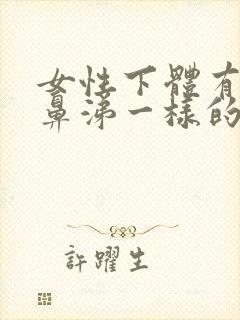 女性下體有
鼻涕一樣的
許躍生